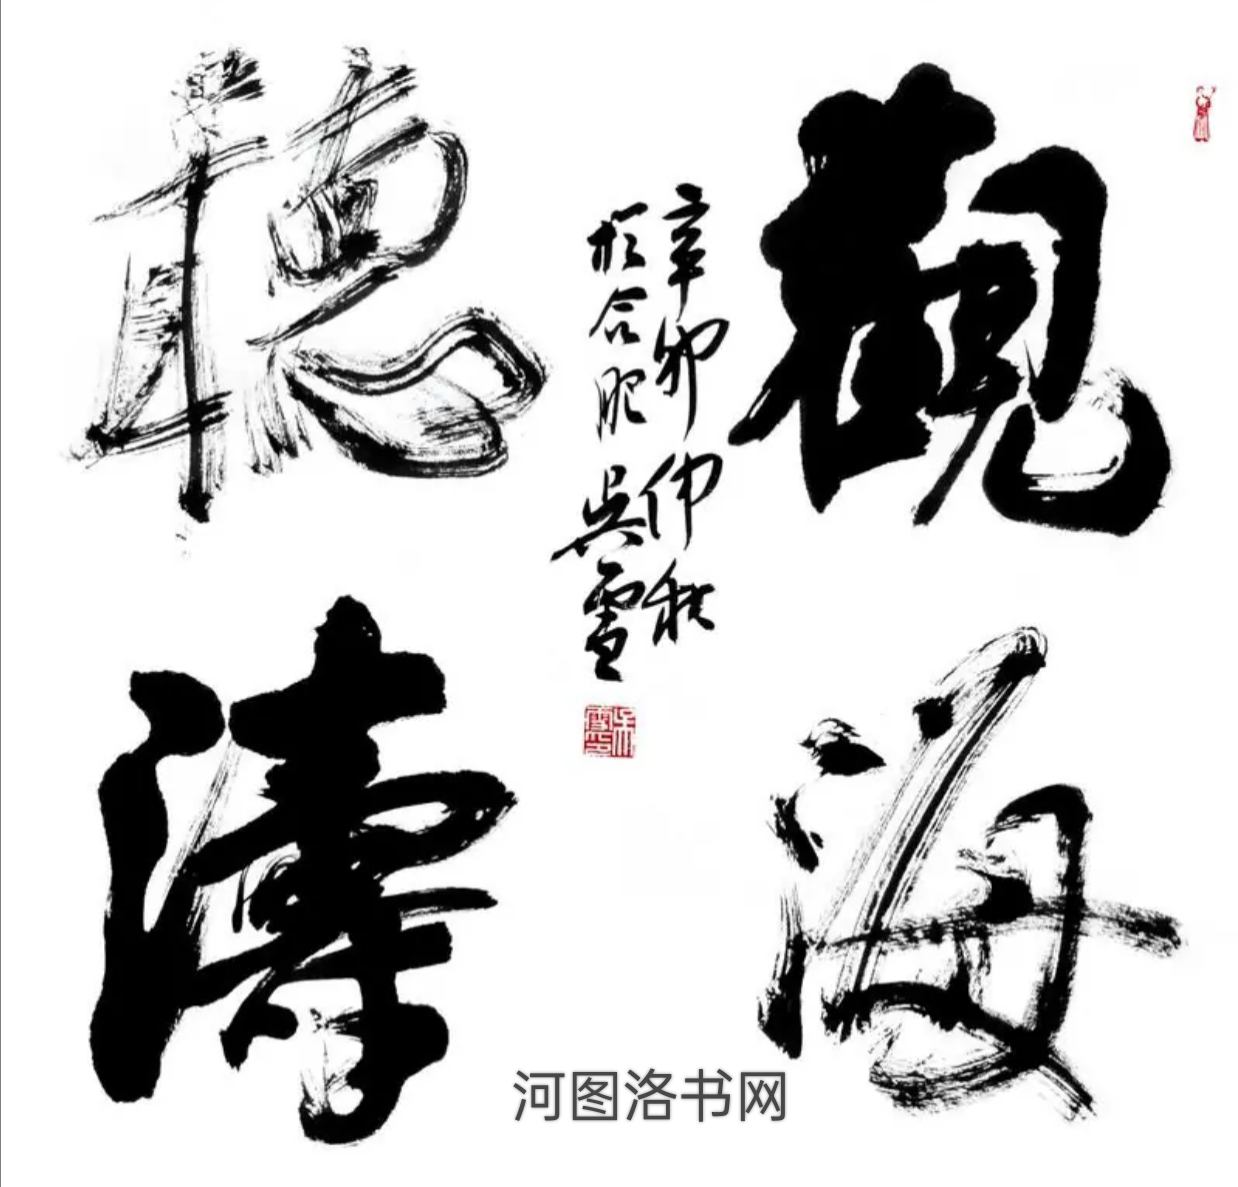 觀海
聴濤
辛卯仲秋
於合肥
吳雪
吳雪之印
河图洛书网